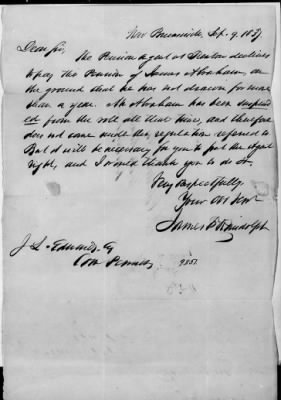 New Brunswick, Sept. 9. 1837
Dear Sir,
The Pension Agent at Trenton declines
to pay the Pension of James Abraham, on
the ground that he has not drawn for more
than a year. Mr Abraham has been suspend
ed from the roll all that time, and therefore
does not come under the regulation referred to
But it will be necessary for you to put the Agent
right, and I would thank you to do so.
Very respectfully,
Your obt Servt
James F. Randolph
J. L. Edwards Esq
Com Pensions